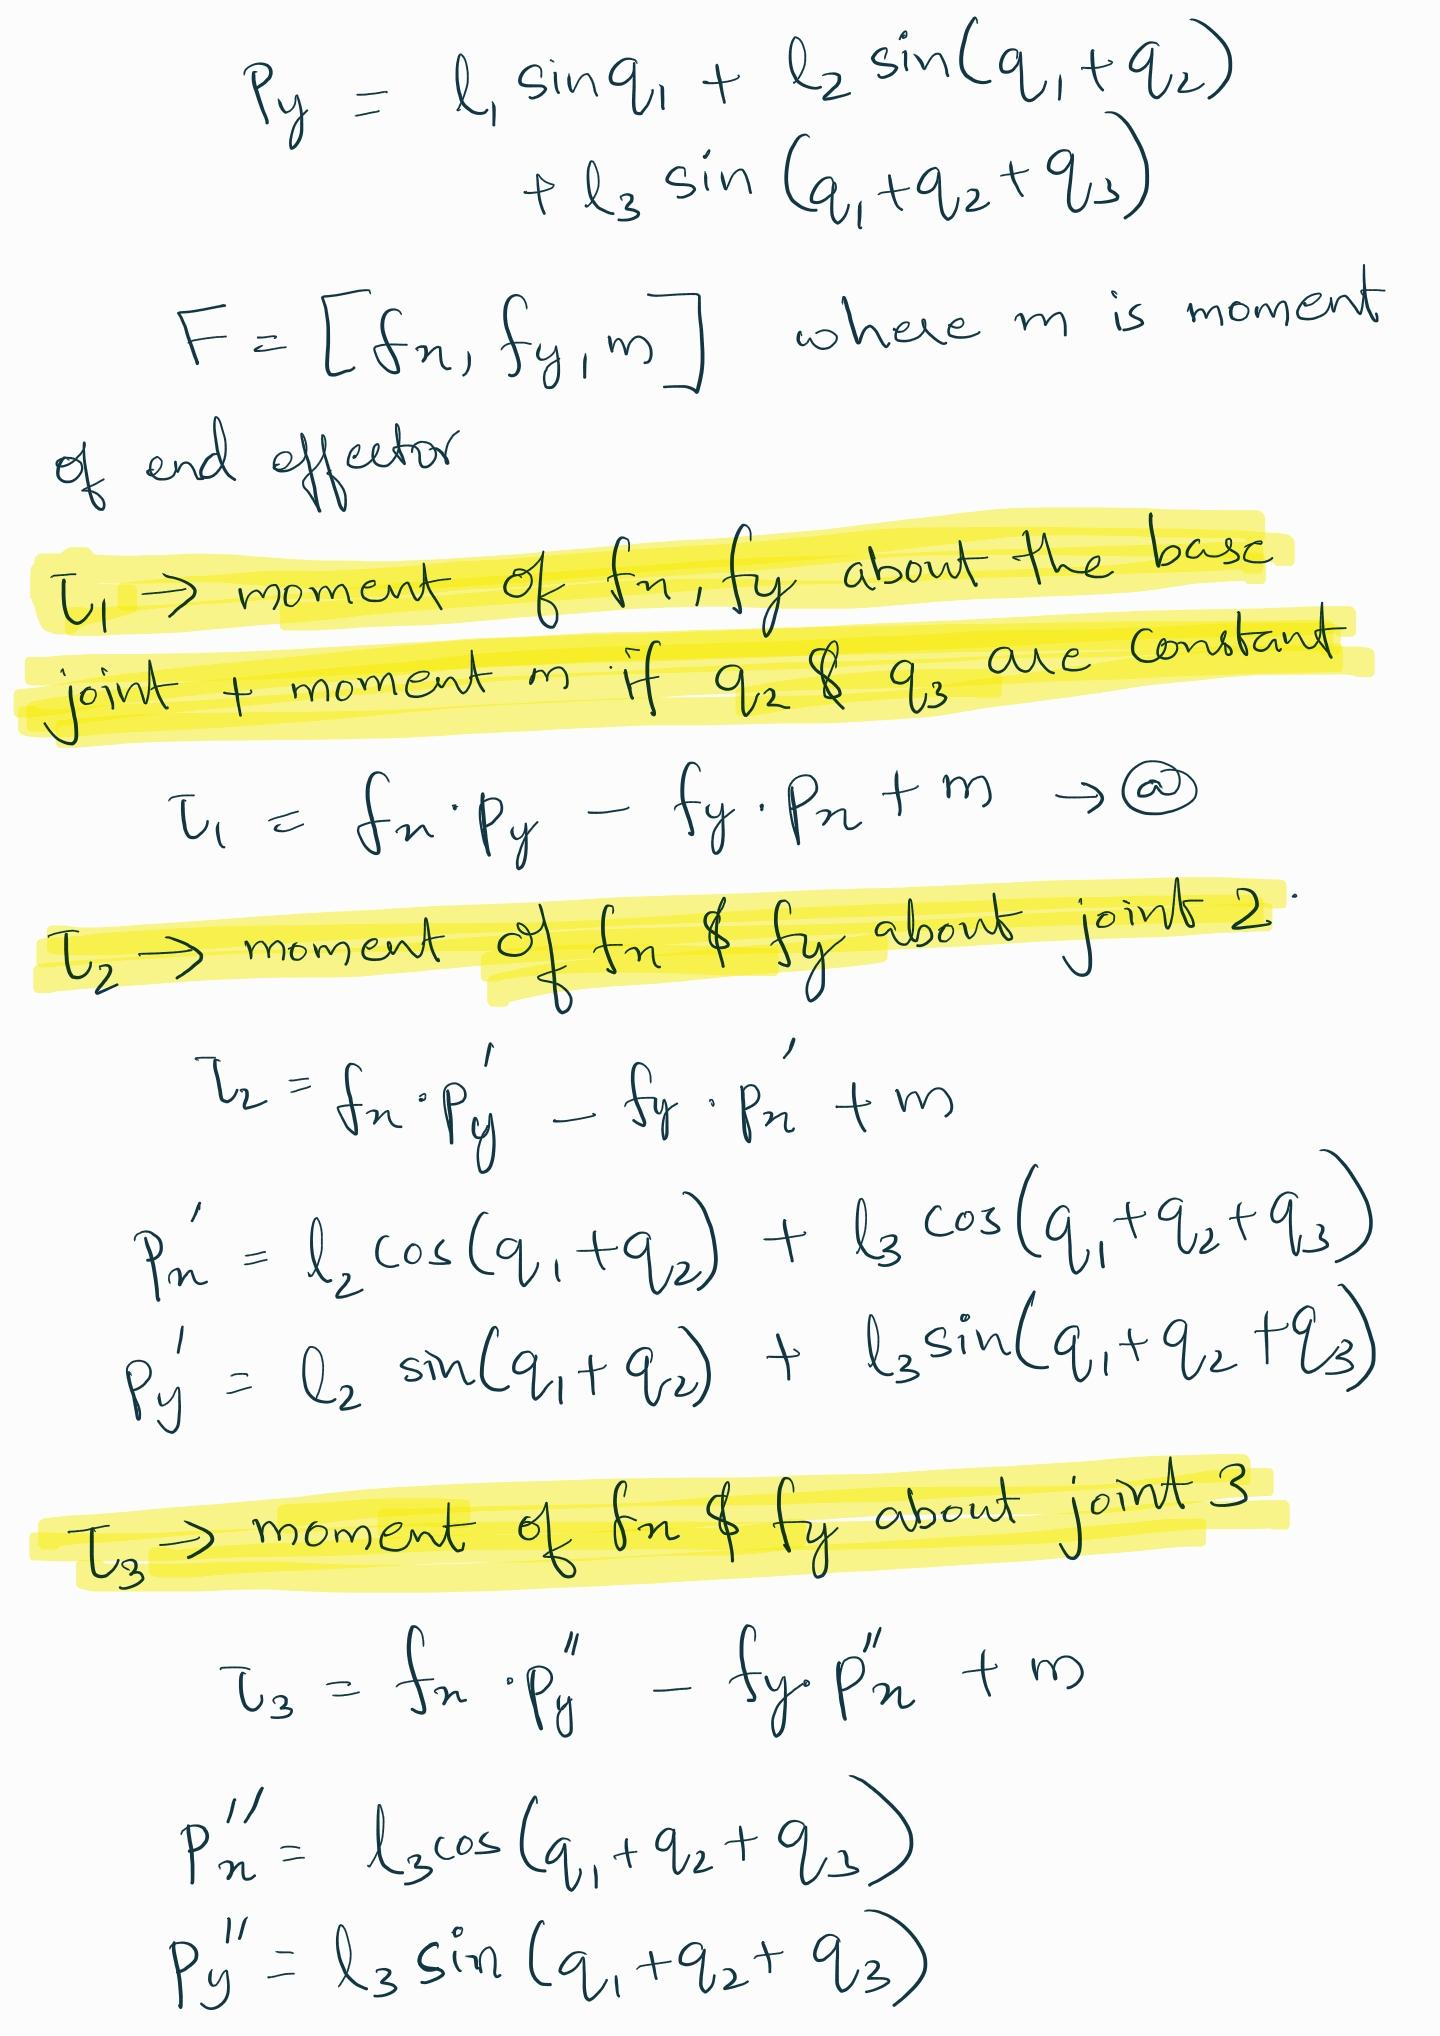 Py = l₁ sinq₁ + l₂ sin(q₁+q₂)
+ l₃ sin (q₁+q₂+q₃)
F = [fx, fy, m] where m is moment
of end effector
τ₁ → moment of fx, fy about the base
joint + moment m if q₂ & q₃ are constant
τ₁ = fx·Py - fy·Px + m → ⓐ
τ₂ → moment of fx & fy about joint 2.
τ₂ = fx·Py' - fy·Px' + m
Px' = l₂ cos(q₁+q₂) + l₃ cos(q₁+q₂+q₃)
Py' = l₂ sin(q₁+q₂) + l₃ sin(q₁+q₂+q₃)
τ₃ → moment of fx & fy about joint 3
τ₃ = fx·Py'' - fy·Px'' + m
Px'' = l₃cos(q₁+q₂+q₃)
Py'' = l₃ sin(q₁+q₂+q₃)